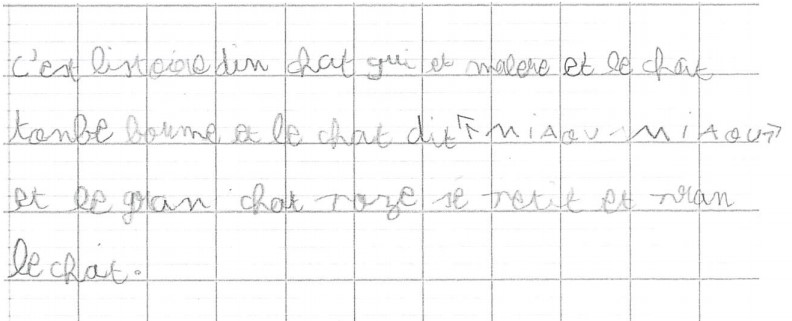 c'est listoire din chat qui et malere et le chat
tonbe boume et le chat dit « MIAOU - MIAOU »
et le gran chat roze se retit et vran
le chat.